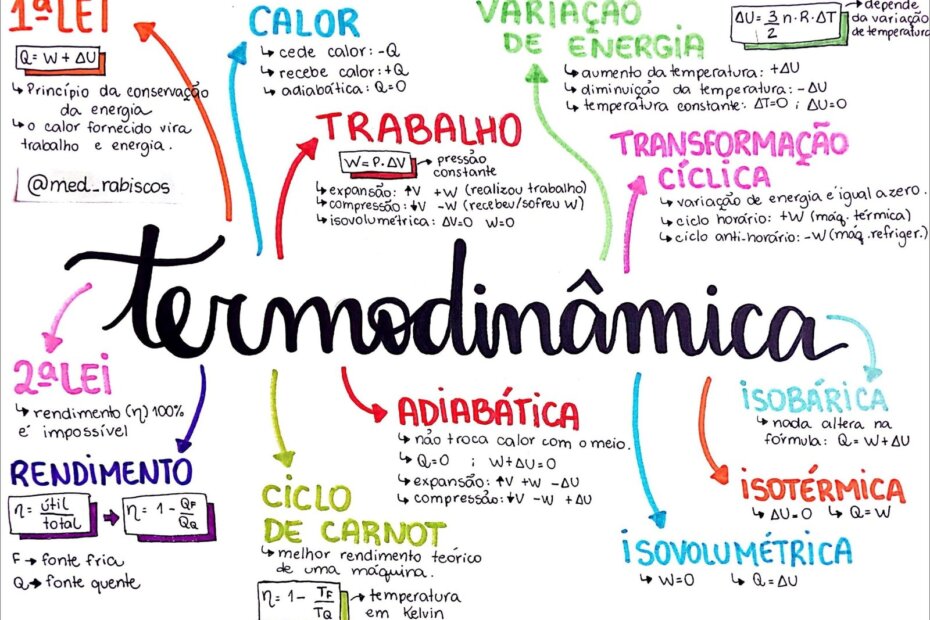 1ª LEI
Q = W + ΔU
↳ Princípio da conservação
da energia
↳ o calor fornecido vira
trabalho e energia.
@med_rabiscos
CALOR
↳ cede calor: -Q
↳ recebe calor: +Q
↳ adiabática: Q=0
TRABALHO
W=P.ΔV → pressão
constante
↳ expansão: ↑V +W (realizou trabalho)
↳ compressão: ↓V -W (recebeu/sofreu W)
↳ isovolumétrica: ΔV=0 W=0
VARIAÇÃO
DE ENERGIA
ΔU = 3/2 n.R.ΔT
→ depende
da variação
de temperatura
↳ aumento da temperatura: +ΔU
↳ diminuição da temperatura: -ΔU
↳ temperatura constante: ΔT=0 ; ΔU=0
TRANSFORMAÇÃO
CÍCLICA
↳ variação de energia é igual a zero.
↳ ciclo horário: +W (máq. térmica)
↳ ciclo anti-horário: -W (máq. refriger.)
termodinâmica
2ª LEI
↳ rendimento (η) 100%
é impossível
RENDIMENTO
η = útil/total → η = 1 - QF/QQ
F → fonte fria
Q → fonte quente
CICLO
DE CARNOT
↳ melhor rendimento teórico
de uma máquina.
η = 1 - TF/TQ → temperatura
em Kelvin
ADIABÁTICA
↳ não troca calor com o meio.
↳ Q=0 ; W+ΔU=0
↳ expansão: ↑V +W -ΔU
↳ compressão: ↓V -W +ΔU
ISOBÁRICA
↳ nada altera na
fórmula: Q=W+ΔU
ISOTÉRMICA
↳ ΔU=0 ↳ Q=W
ISOVOLUMÉTRICA
↳ W=0 ↳ Q=ΔU